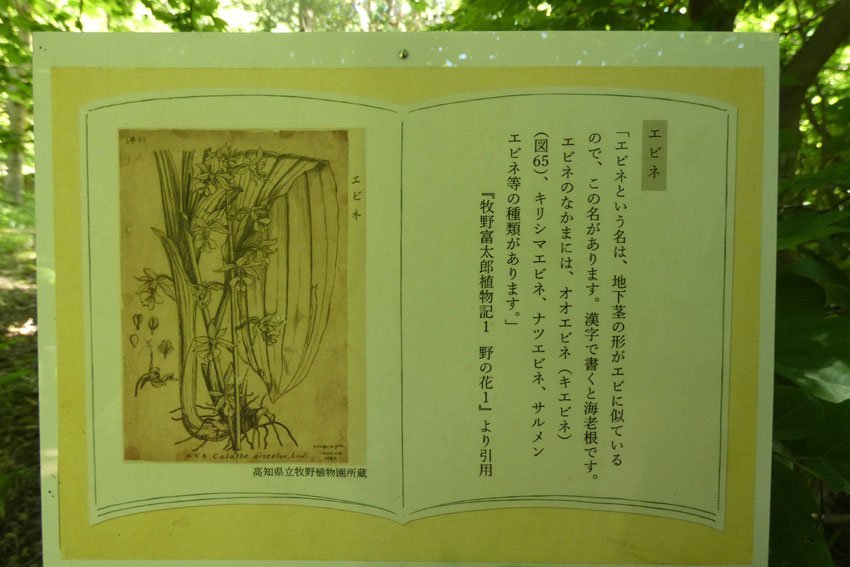 エビネ
「エビネという名は、地下茎の形がエビに似ている
ので、この名があります。漢字で書くと海老根です。
エビネのなかまには、オオエビネ（キエビネ）
（図65）、キリシマエビネ、ナツエビネ、サルメン
エビネ等の種類があります。」
『牧野富太郎植物記1　野の花1』より引用
エビネ
エビネ Calanthe discolor, Lindl.
高知県立牧野植物園所蔵